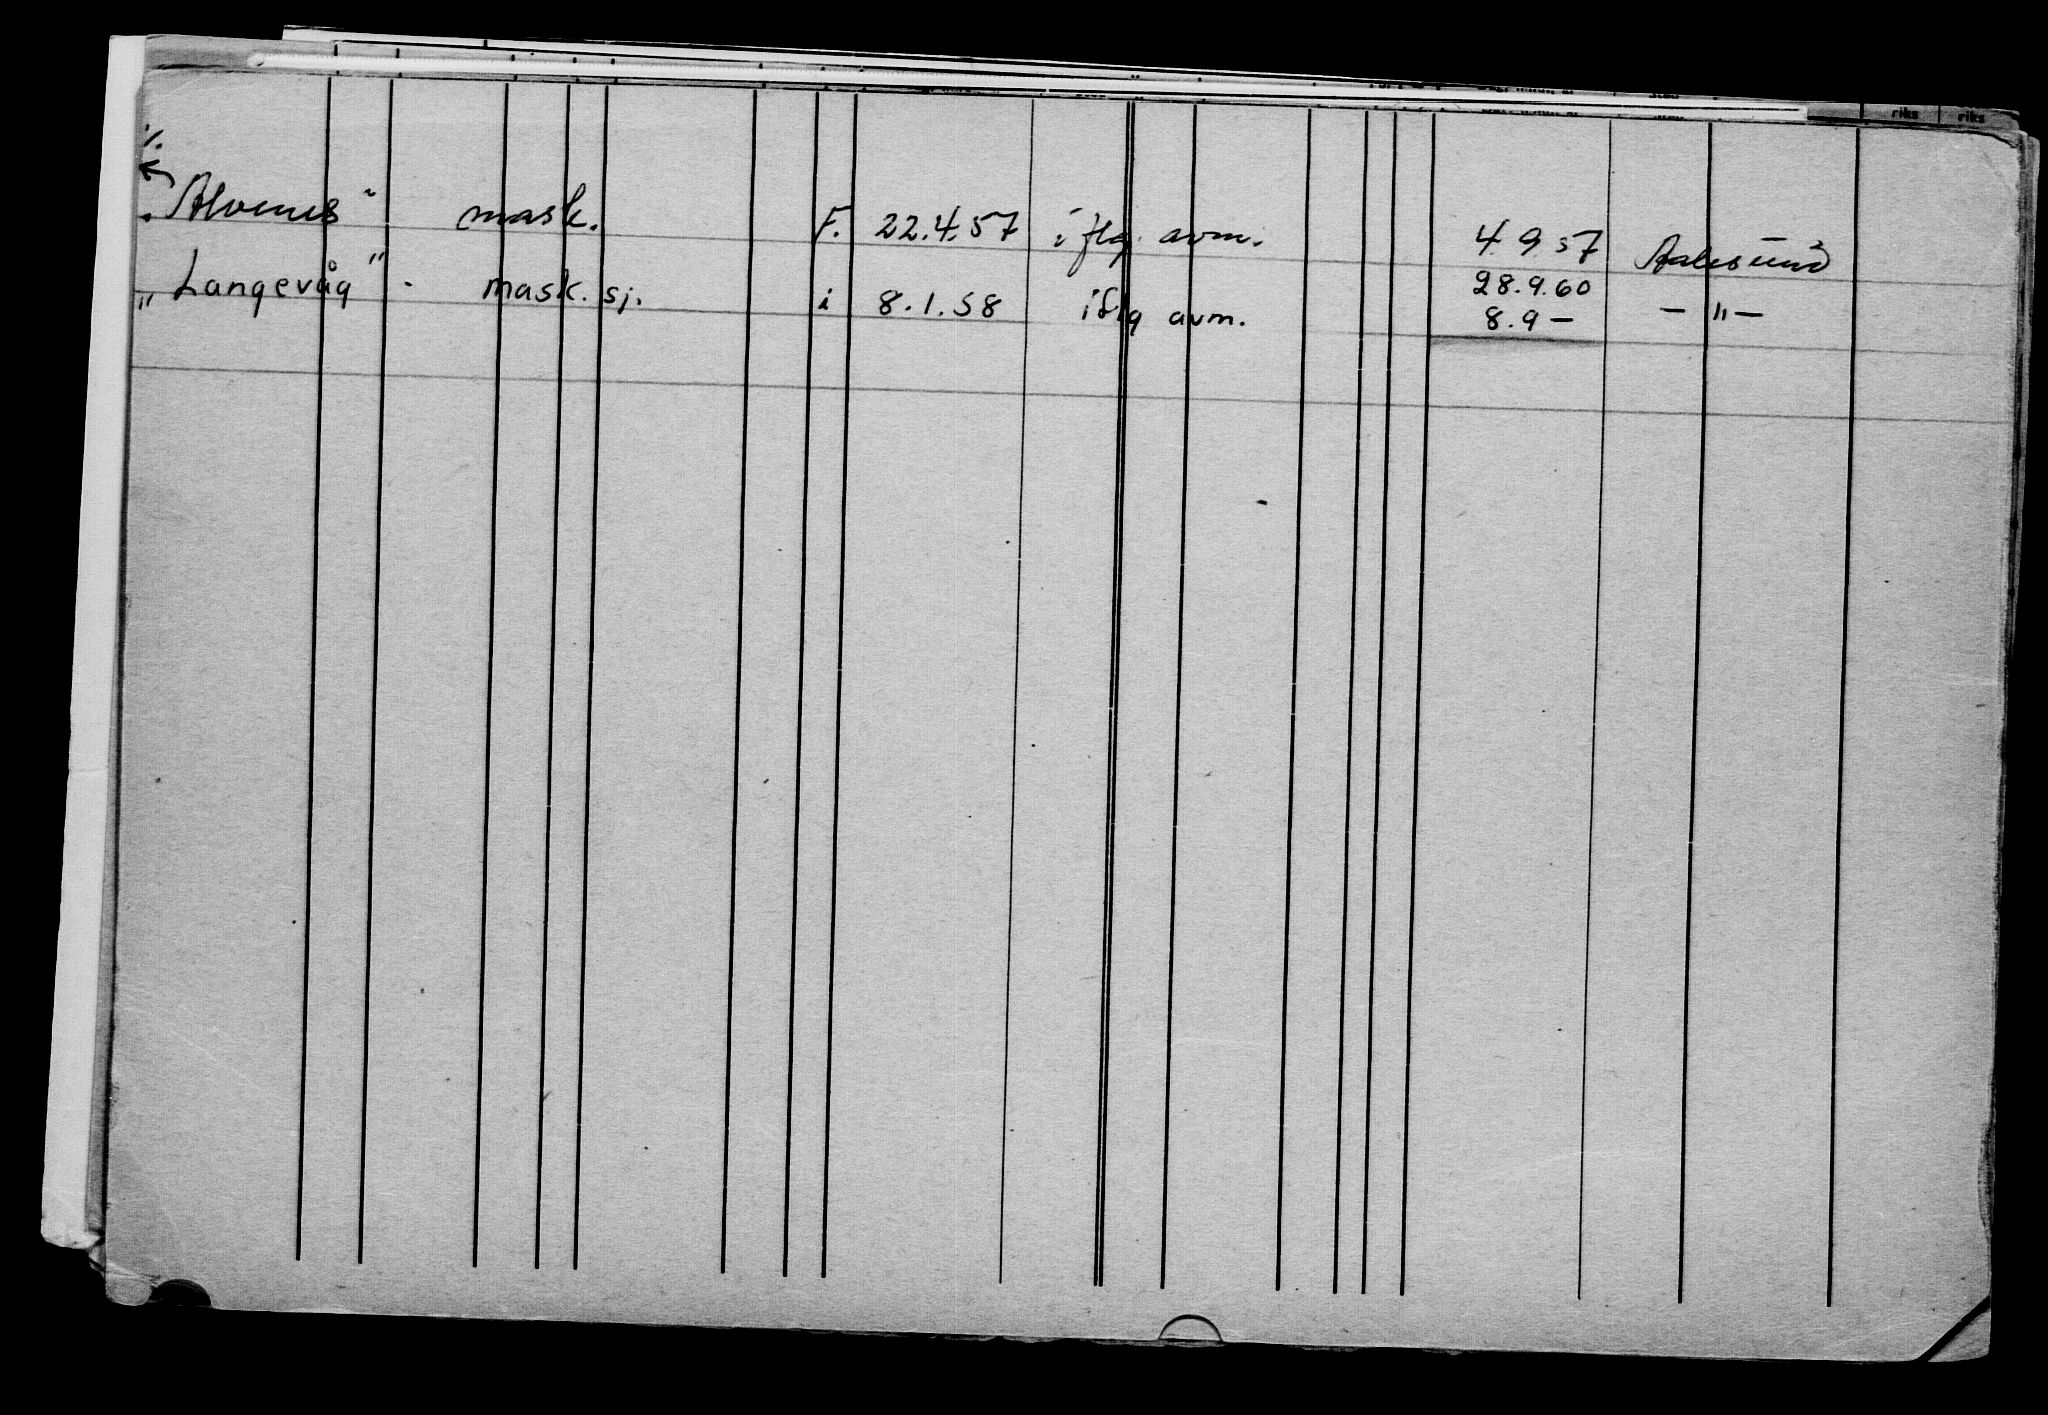 riks riks
%.
"Alvenes" mask. F. 22.4.57 iflg. avm. 4 9 57 Aalesund
"Langevåg" - mask. sj. i 8.1.58 iflg avm. 28.9.60
8.9 — — " —